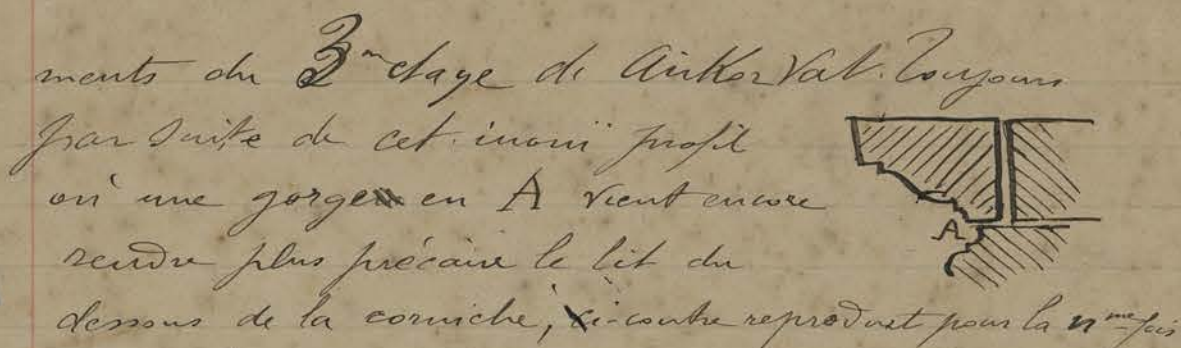 ments du 3m etage de Ankor Vat. Toujours
par suite de cet inouï profil
où une gorge en A vient encore
A
rendre plus précaire le lit du
dessous de la corniche, ci-contre reproduit pour la nme fois